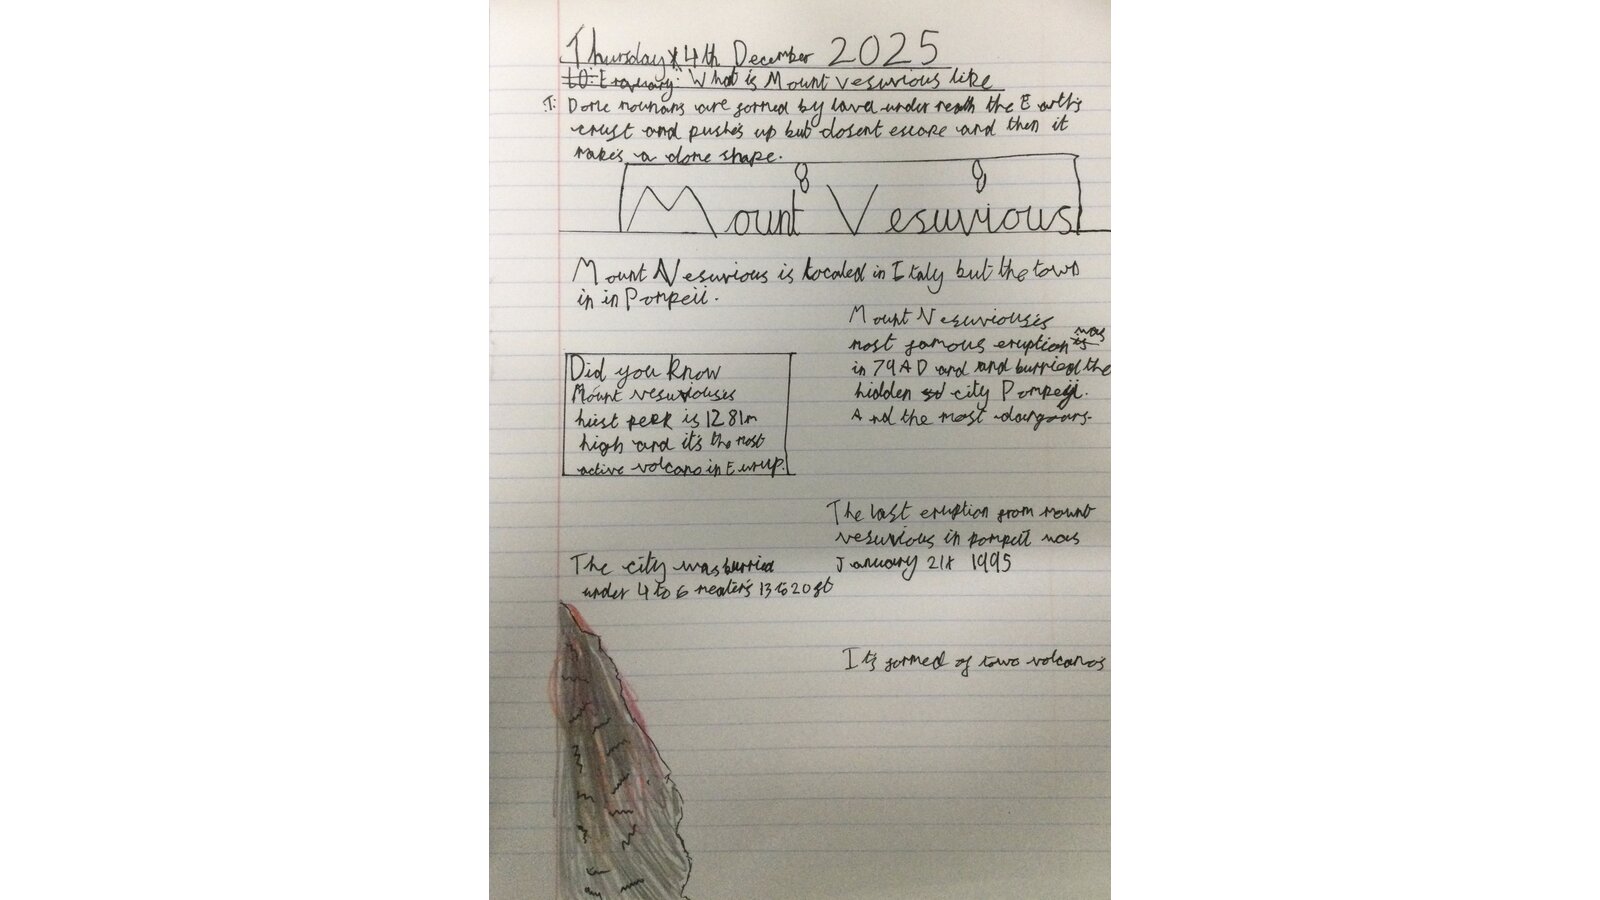 Thursday 4th December 2025
What is Mount Vesuvious like
T: Dome mounans are formed by lava under neath the Earth's
crust and pushes up but dosent escape and then it
makes a dome shape.
Mount Vesuvious
Mount Vesuvious is located in Italy but the town
in in Pompeii.
Mount Vesuviouses
most famous eruption was
in 79AD and and burried the
hidden city Pompeji.
And the most
Did you know
Mount vesuviouses
heist peek is 1281m
high and it's the most
active volcano in Eurup.
The last eruption from mount
vesuvious in pompeii was
January 21st 1995
The city was burried
under 4 to 6 meaters 13 to 20 ft
It's formed of towo volcanos